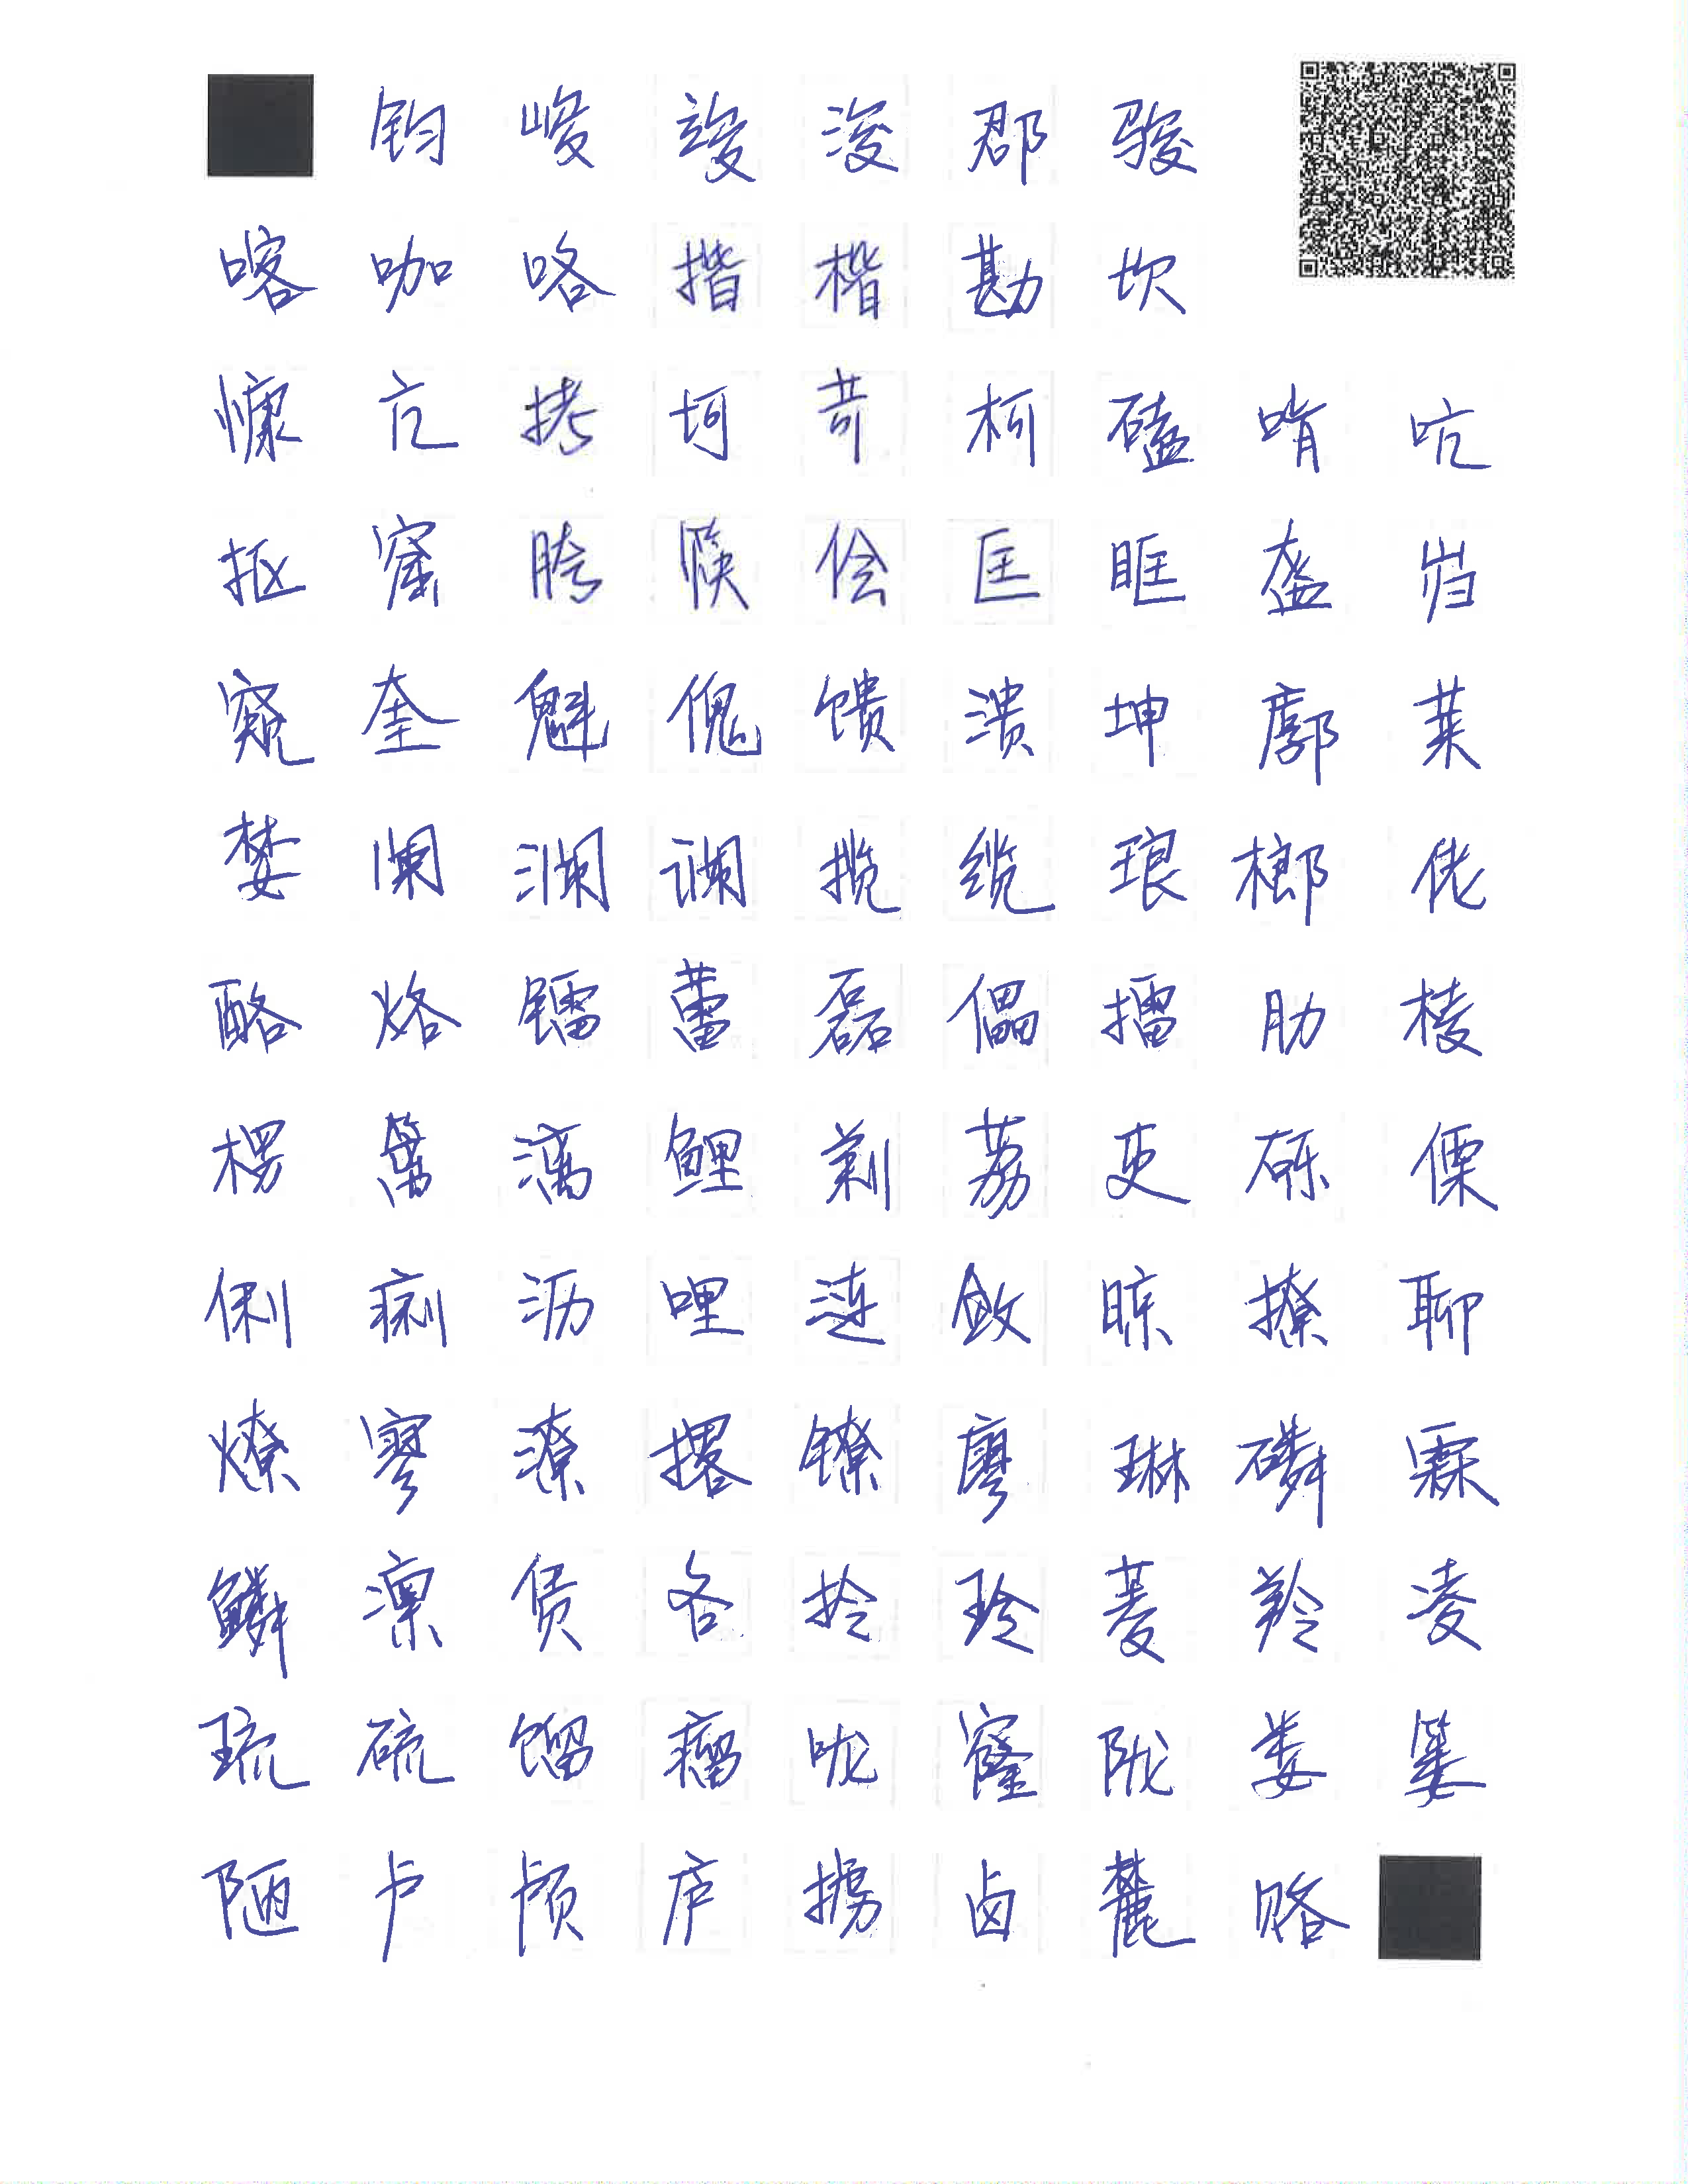 钧 峻 竣 浚 郡 骏
喀 咖 咯 揩 楷 勘 坎
慷 亢 拷 坷 苛 柯 磕 啃 吭
抠 窟 胯 筷 侩 匡 眶 盔 岿
窥 奎 魁 傀 馈 溃 坤 廓 莱
婪 阑 澜 谰 揽 缆 琅 榔 佬
酪 烙 镭 蕾 磊 儡 擂 肋 棱
楞 篱 漓 鲤 莉 荔 吏 砾 傈
俐 痢 沥 哩 涟 敛 晾 撩 聊
燎 寥 潦 撂 镣 廖 琳 磷 霖
鳞 凛 赁 吝 拎 玲 菱 羚 凌
琉 硫 馏 瘤 咙 窿 陇 娄 篓
陋 卢 颅 庐 掳 卤 麓 赂